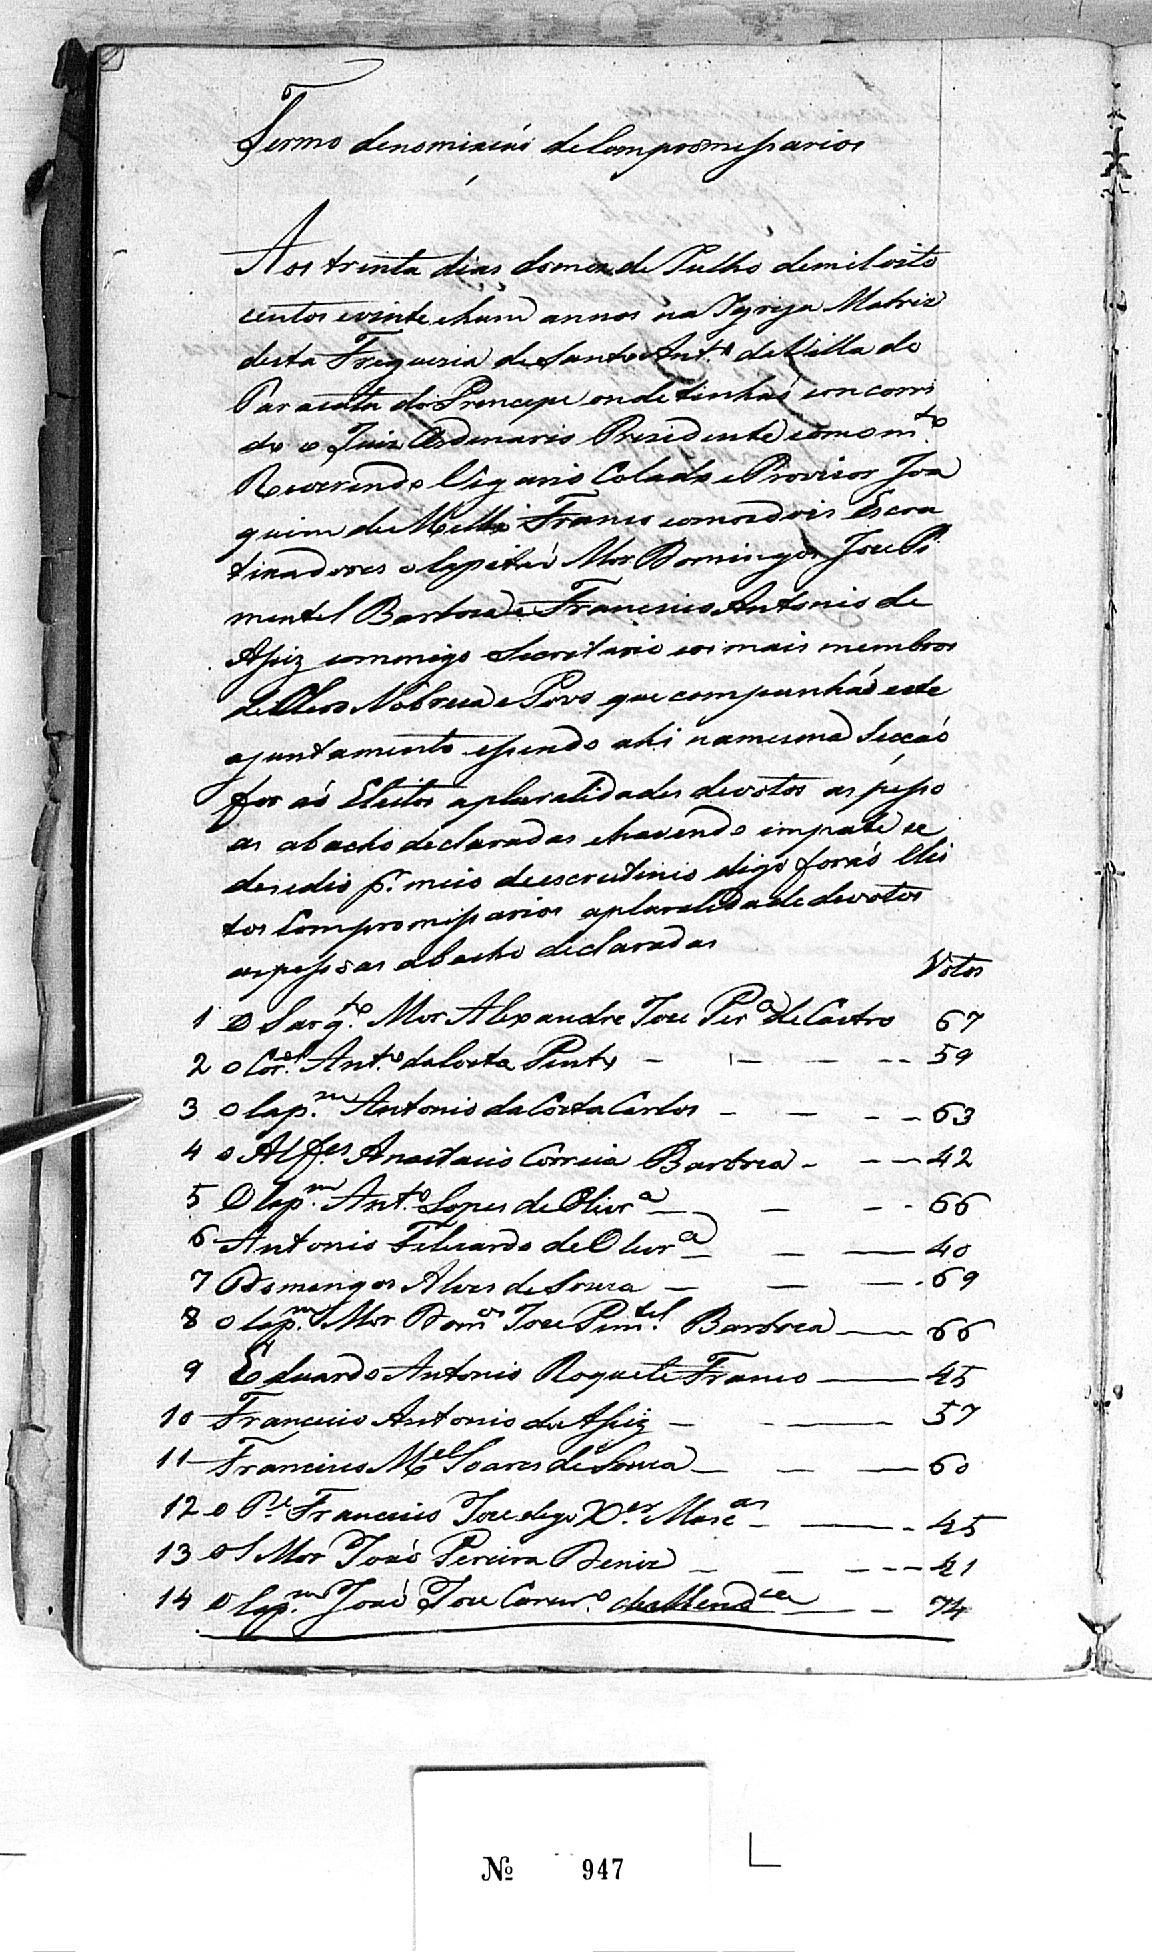 Termo denomiação deCompromissarios
Aos trinta dias domez de Julho demiloito
centos evinte ehum annos na Igreja Matriz
desta Freguezia de Santo Ant.º deVilla do
Paracatu do Prencepe ondetinhaó concorri
do o Juiz Ordenario Prezidente comom.to
Reverendo Vigario Colado e Provizor Joa
quim de Mello Franco comosdois Escro
tinadores o Capitaó Mor Domingos Joze Pi
mentel Barboza e Francisco Antonio de
Assiz comemigo Secretario eosmais membros
do Clero Nobreza e Povo que compunhaó este
ajuntamento essendo ahi namesma Secçaó
foraó Eleitos apluralidades devotos as pesso
as abacho declaradas ehavendo empate se
desedio p.r meio deescrutinio digo foraó Elei
tos Compromissarios apluralidade devotos
aspessoas abacho declaradas
Votos
1 O Sarg.to Mor Alexandre Joze Per.ª de Castro 67
2 o Cor.el Ant.º daCosta Pinto - - - -- 59
3 O Cap.m Antonio da Costa Carlos - - - - 63
4 o Alf.es Anastacio Correia Barboza - - - 42
5 O Cap.m Ant.º Lopes de Olivr.ª - - - - 66
6 Antonio Filizardo de Olivr.ª - - - 40
7 Domingos Alves de Souza - - - 69
8 o Cap.m Mor Dom.os Joze Pim.tel Barboza - 66
9 Eduardo Antonio Roquete Franco - 45
10 Francisco Antonio de Assiz - - 57
11 Francisco M.el Soares de Souza - - - 60
12 o P.e Francisco Joze digo X.er Masc.as - - - 45
13 o S Mor Joaó Pereira Deniz - - - - 41
14 O Cap.m Joaó Joze Carnr.º de Mend.ca - - 74
Nº 947